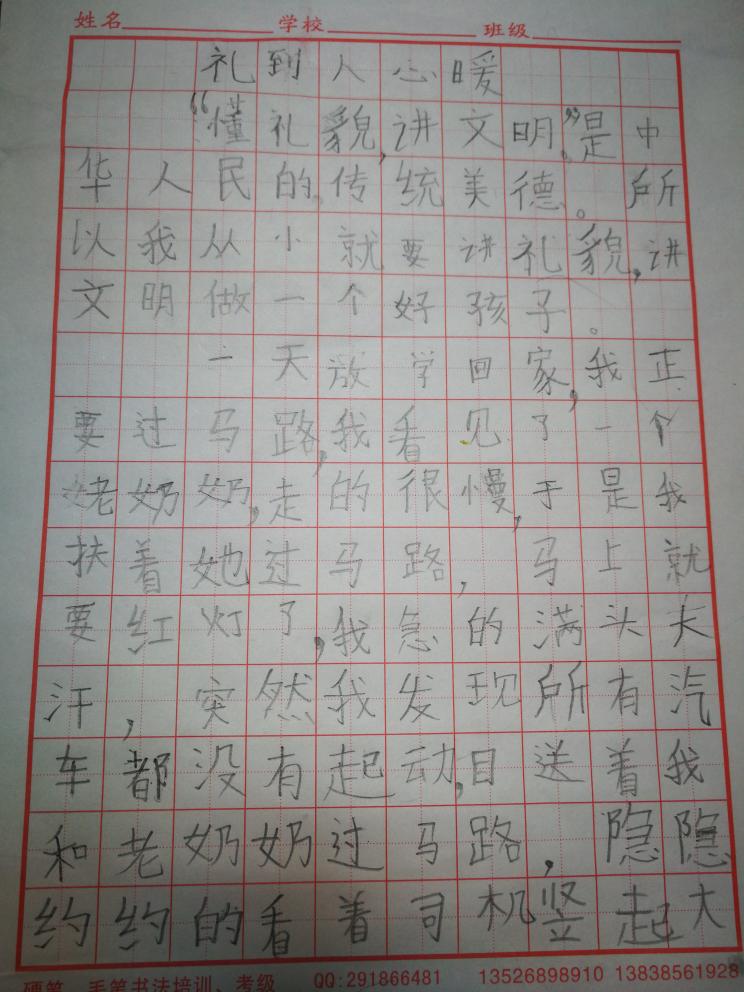 姓名 学校 班级
礼到人心暖
“懂礼貌,讲文明。”是中
华人民的传统美德。所
以我从小就要讲礼貌,讲
文明做一个好孩子。
一天放学回家,我正
要过马路,我看见了一个
老奶奶,走的很慢,于是我
扶着她过马路,马上就
要红灯了,我急的满头大
汗,突然我发现所有汽
车都没有起动,目送着我
和老奶奶过马路,隐隐
约约的看着司机竖起大
硬笔、毛笔书法培训、考级 QQ:291866481 13526898910 13838561928